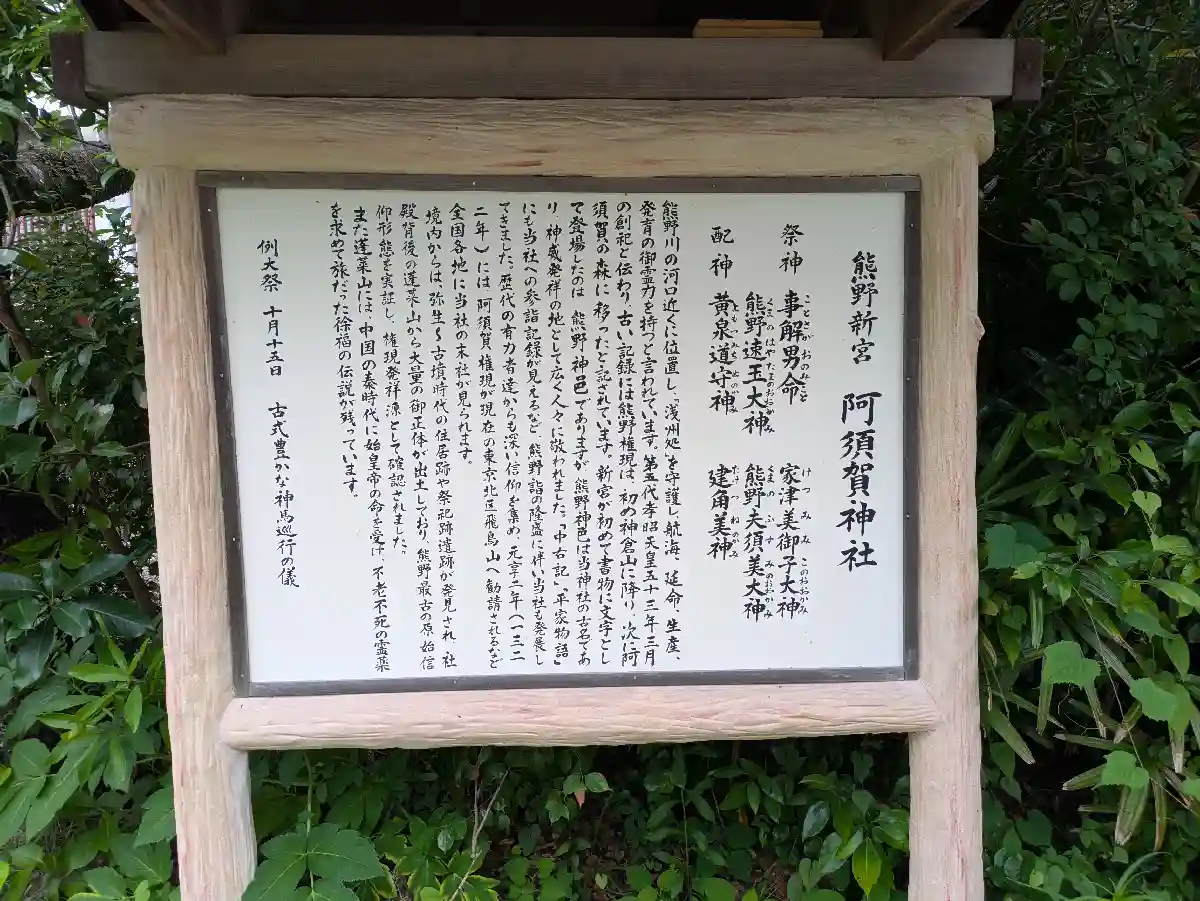 熊野新宮 阿須賀神社
祭神 事解男命 家津美御子大神
ことさかおのみこと けつみみこのおおかみ
熊野速玉大神 熊野夫須美大神
くまのはやたまのおおかみ くまのふすみのおおかみ
配神 黄泉道守神 建角美神
よみちもりのかみ たけつねのかみ
熊野川の河口近くに位置し、浅州処を守護し、航海、延命、生産、
発育の御霊力を持つと言われています。第五代孝昭天皇五十三年三月
の創祀と伝わり、古い記録には熊野権現は、初め神倉山に降り、次に阿
須賀の森に移ったと記されています。新宮が初めて書物に文字とし
て登場したのは、熊野神邑でありますが、熊野神邑は当神社の古名であ
り、神威発祥の地として広く人々に敬われました。「中右記」「平家物語」
にも当社への参詣記録が見えるなど、熊野詣の隆盛に伴い当社も発展し
てきました。歴代の有力者達からも深い信仰を集め、元亨二年(一三二
二年)には阿須賀権現が現在の東京北区飛鳥山へ勧請されるなど
全国各地に当社の末社が見られます。
境内からは、弥生〜古墳時代の住居跡や祭祀跡遺跡が発見され、社
殿背後の蓬莱山から大量の御正体が出土しており、熊野最古の原始信
仰形態を実証し、権現発祥源として確認されました。
また蓬莱山には、中国の秦時代に始皇帝の命を受け、不老不死の霊薬
を求めて旅だった徐福の伝説が残っています。
例大祭 十月十五日 古式豊かな神馬巡行の儀